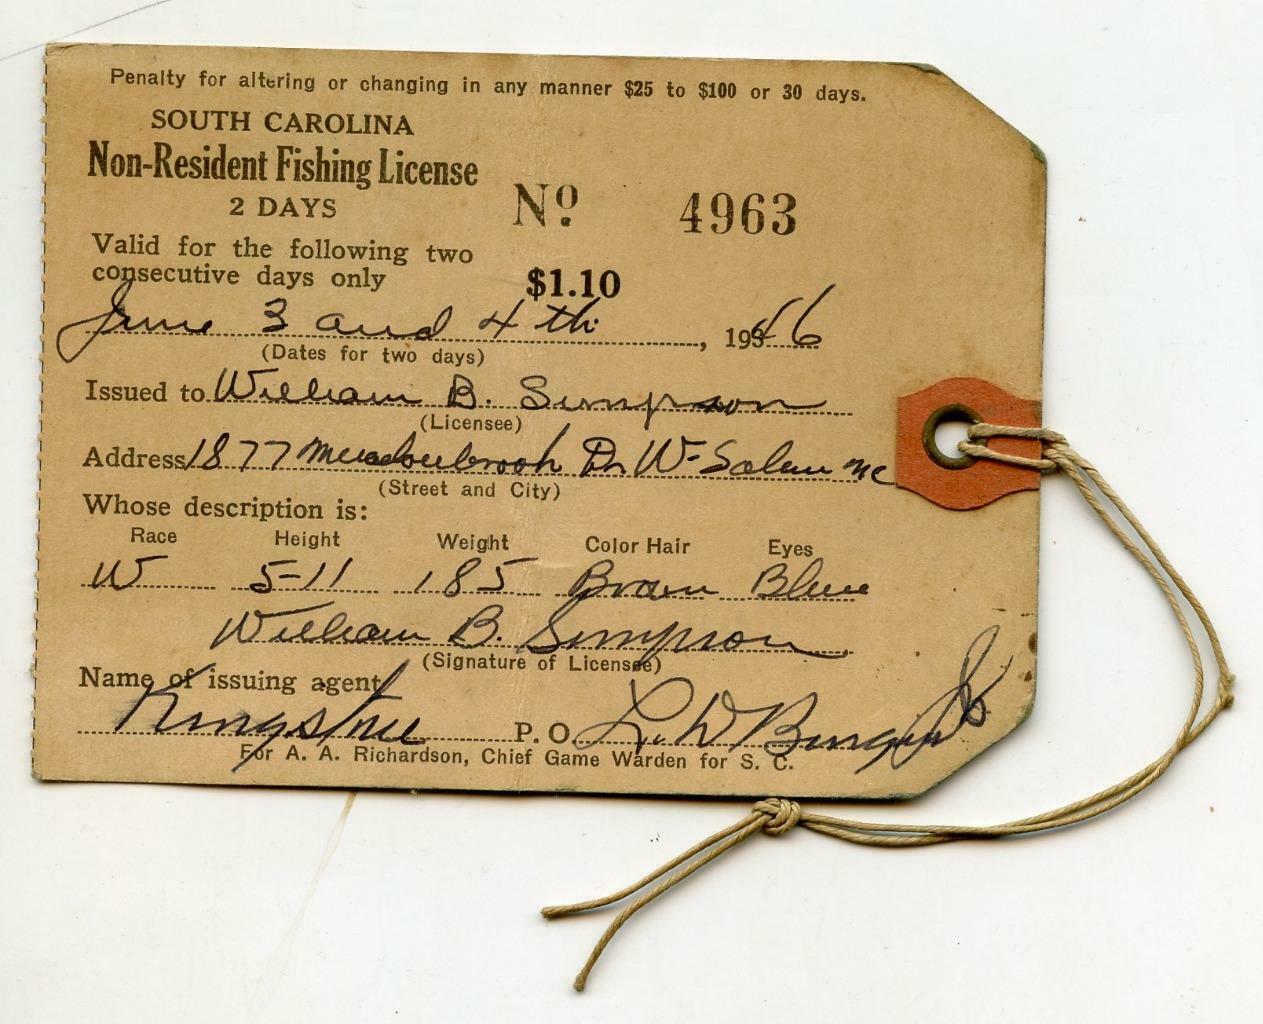 Penalty for altering or changing in any manner $25 to $100 or 30 days.
SOUTH CAROLINA
Non-Resident Fishing License
2 DAYS
No. 4963
Valid for the following two
consecutive days only
$1.10
June 3 and 4th, 1946
(Dates for two days)
Issued to William B. Simpson
(Licensee)
Address 1877 Meadowbrook Dr W-Salem NC
(Street and City)
Whose description is:
Race Height Weight Color Hair Eyes
W 5-11 185 Brown Blue
William B. Simpson
(Signature of Licensee)
Name of issuing agent
Kingstree P. O. L. W. Jr
For A. A. Richardson, Chief Game Warden for S. C.